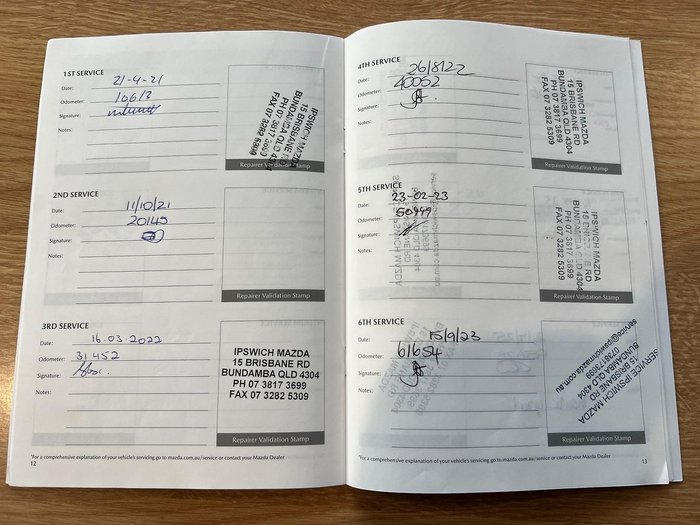 1ST SERVICE
Date: 21-4-21
Odometer: 10613
Signature:
Notes:
IPSWICH MAZDA
15 BRISBANE RD
BUNDAMBA QLD 4304
PH 07 3817 3699
FAX 07 3282 5309
Repairer Validation Stamp
2ND SERVICE
Date: 11/10/21
Odometer: 20145
Signature:
Notes:
Repairer Validation Stamp
3RD SERVICE
Date: 16.03.2022
Odometer: 31452
Signature:
Notes:
IPSWICH MAZDA
15 BRISBANE RD
BUNDAMBA QLD 4304
PH 07 3817 3699
FAX 07 3282 5309
Repairer Validation Stamp
*For a comprehensive explanation of your vehicle's servicing go to mazda.com.au/service or contact your Mazda Dealer
12
4TH SERVICE
Date: 26/8/22
Odometer: 40052
Signature:
Notes:
IPSWICH MAZDA
15 BRISBANE RD
BUNDAMBA QLD 4304
PH 07 3817 3699
FAX 07 3282 5309
Repairer Validation Stamp
5TH SERVICE
Date: 23-02-23
Odometer: 50949
Signature:
Notes:
IPSWICH MAZDA
15 BRISBANE RD
BUNDAMBA QLD 4304
PH 07 3817 3699
FAX 07 3282 5309
Repairer Validation Stamp
6TH SERVICE
Date: 15/9/23
Odometer: 61654
Signature:
Notes:
SERVICE IPSWICH MAZDA
15 BRISBANE RD
BUNDAMBA QLD 4304
0738173699
service@ipswichmazda.com.au
Repairer Validation Stamp
*For a comprehensive explanation of your vehicle's servicing go to mazda.com.au/service or contact your Mazda Dealer
13